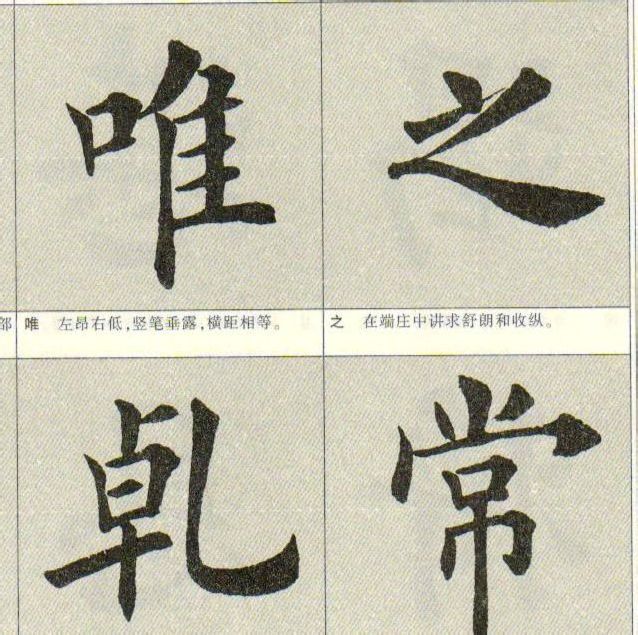 唯 之
部 唯 左昂右低，竖笔垂露，横距相等。 之 在端庄中讲求舒朗和收纵。
乹 常